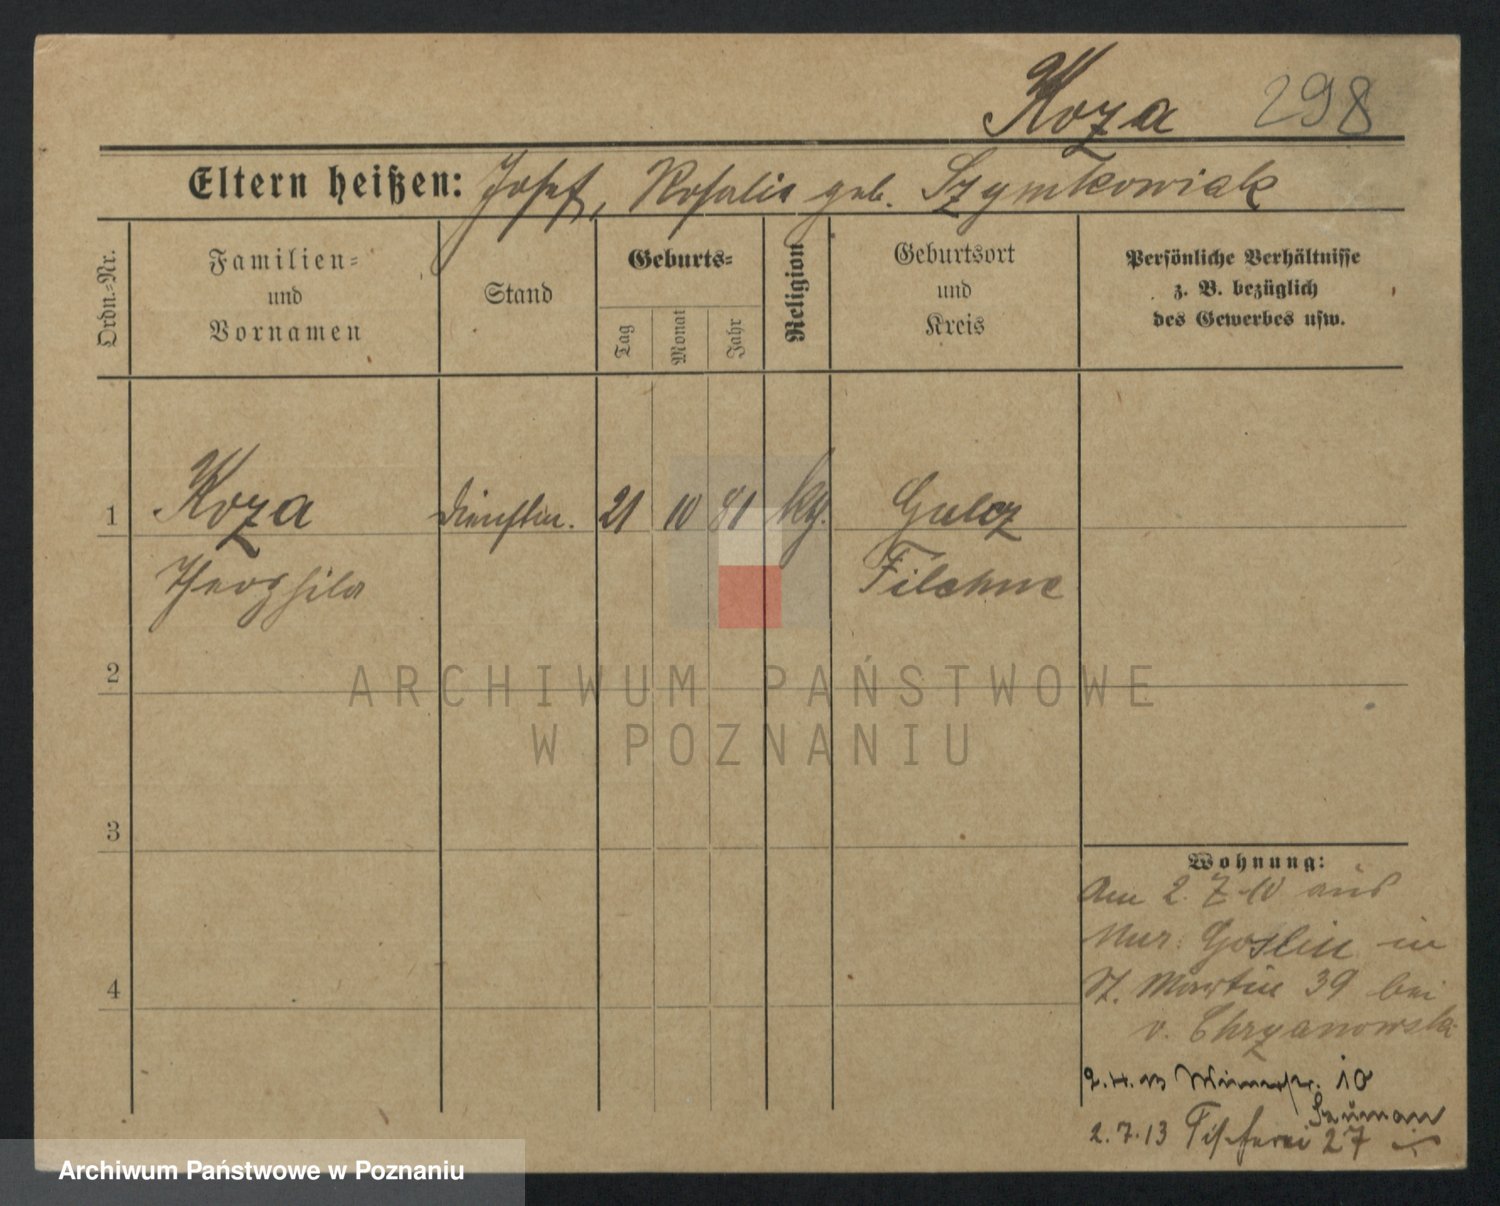 Koza 298
Eltern heißen: Josef, Rosalie geb. Szymkowiak
Ordn.-Nr.
Familien-
und
Vornamen
Stand
Geburts-
Tag
Monat
Jahr
Religion
Geburtsort
und
Kreis
Persönliche Verhältnisse
z. B. bezüglich
des Gewerbes usw.
1 Koza 21 10 81 Gulcz
Theophila Filehne
2
3
4
Wohnung:
Am 2. 7. 10 aus
Mur. Goslin in
St. Martin 39 bei
v. Chrzanowski
2.4. 10
Szuman
2.7.13 Fischerei 27
ARCHIWUM PAŃSTWOWE
W POZNANIU
Archiwum Państwowe w Poznaniu